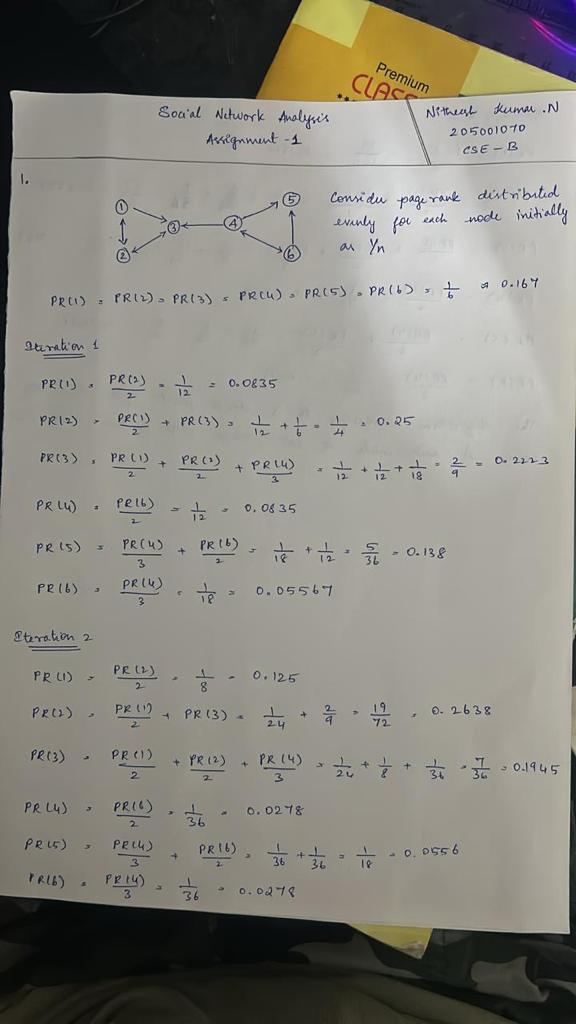 Premium
CLASS
Social Network Analysis
Assignment -1
Nitheesh Kumar .N
205001070
CSE - B
1.
1 2 3 4 5 6
Consider page rank distributed
evenly for each node initially
as 1/n
PR(1) = PR(2) = PR(3) = PR(4) = PR(5) = PR(6) = 1/6 ⇒ 0.167
Iteration 1
PR(1) = PR(2)/2 = 1/12 = 0.0835
PR(2) = PR(1)/2 + PR(3) = 1/12 + 1/6 = 1/4 = 0.25
PR(3) = PR(1)/2 + PR(2)/2 + PR(4)/3 = 1/12 + 1/12 + 1/18 = 2/9 = 0.2223
PR(4) = PR(6)/2 = 1/12 = 0.0835
PR(5) = PR(4)/3 + PR(6)/2 = 1/18 + 1/12 = 5/36 = 0.138
PR(6) = PR(4)/3 = 1/18 = 0.05567
Iteration 2
PR(1) = PR(2)/2 = 1/8 = 0.125
PR(2) = PR(1)/2 + PR(3) = 1/24 + 2/9 = 19/72 = 0.2638
PR(3) = PR(1)/2 + PR(2)/2 + PR(4)/3 = 1/24 + 1/8 + 1/36 = 7/36 = 0.1945
PR(4) = PR(6)/2 = 1/36 = 0.0278
PR(5) = PR(4)/3 + PR(6)/2 = 1/36 + 1/36 = 1/18 = 0.0556
PR(6) = PR(4)/3 = 1/36 = 0.0278